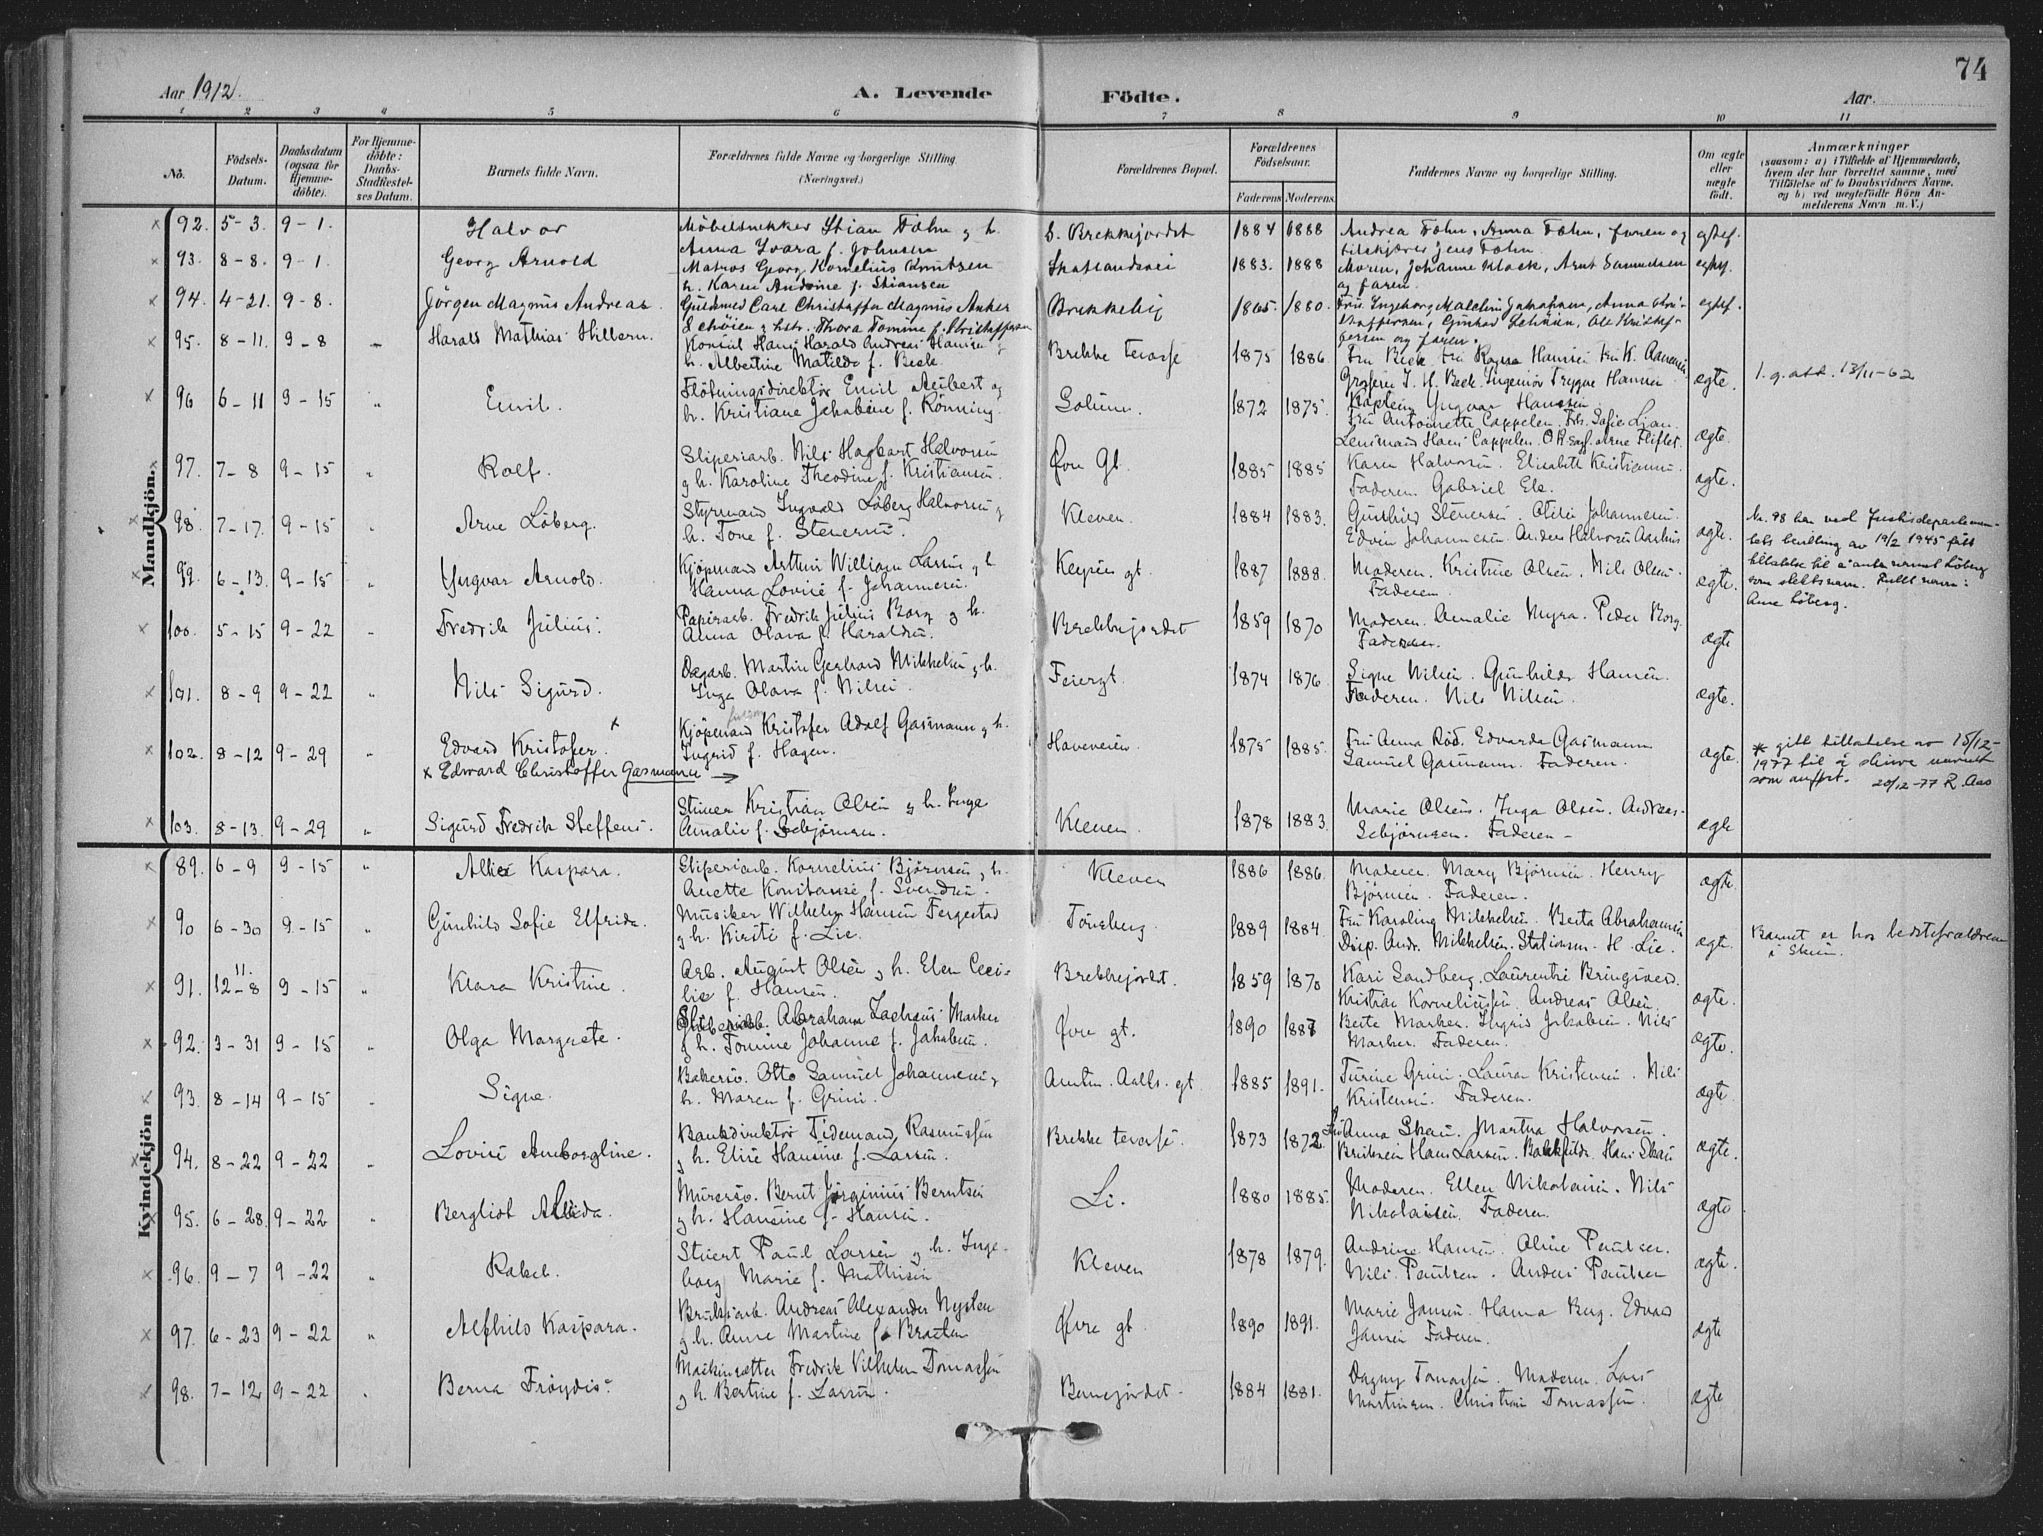 74
Aar 1912. A. Levende Födte. Aar.
1 2 3 4 5 6 7 8 9 10 11
No. Födsels-Datum. Daabsdatum (ogsaa for Hjemmedöbte). For Hjemmedöbte: Daabs-Stadfæstelses Datum. Barnets fulde Navn. Forældrenes fulde Navne og borgerlige Stilling. (Næringsvei.) Forældrenes Bopæl. Forældrenes Födselsaar. Faderens Moderens Faddernes Navne og borgerlige Stilling. Om ægte eller uægte födt. Anmærkninger (saasom: a) i Tilfælde af Hjemmedaab, hvem der har forrettet samme, med Tilföielse af to Daabsvidners Navne, og b) ved uægtefödte Börn Anmelderens Navn m. V.)
Mandkjön.
92. 5-3. 9-1. Halvor Möbelsnekker Stian Fohn g h. Brekkejordet 1884 1888 Andrea Fohn, Anna Fohn, faren og
Anna Lvara f. Johnsen Jens Fohn
93. 8-8. 9-1. Georg Arnold Matros Georg Kornelius Knutsen 1883. 1888 Moren, Johanne Klock, Arnt Samuelsen
h. Karen Andoine f. Stiansen og faren
94. 4-21. 9-8. Jörgen Magnus Andreas Carl Christoffer Magnus Anker Brekkebig 1865. 1880. Frk. Ingeborg Malchin Jakobsen, Anna Kri-
Schöien g hstr. Thora Tomine f. Kristoffersen stoffersen, Gunhod Schöien, Ole Kristof-
fersen og faren.
95. 8-11. 9-8 Harald Mathias Hillern. Konsul Hans Harald Andreas Hansen g Brekke terasse 1875 1886. Fru Beck Fru Ragna Hansen Fru K. Aanesen
h. Albertine Matilde f. Beck. Grosserer I. H. Beck. Ingeniör Trygve Hansen ægte. 1. g. att. 13/11-62
Kaptein Yngvar Hansen
96 6-11 9-15 " Emil. Flötningsdirektör Emil Aubert og Solum. 1872 1875. Fru Antoinette Cappelen. Frk. Sofie Lian.
h. Kristiane Jakobine f. Rönning. Lensmand Hans Cappelen. Arne Fliflet. ægte.
97. 7-8 9-15 " Rolf. Sliperiarb. Nils Hagbart Halvorsen Övre gt. 1885 1885 Karen Halvorsen. Elisabeth Kristiansen.
g h. Karoline Theodine f. Kristiansen. Faderen. Gabriel Ek. ægte.
98. 7-17. 9-15 " Arne Löberg. Styrmand Ingvald Löberg Halvorsen g Kleven. 1884 1883. Gunhild Stenersen. Otilie Johannesen.
h. Tone f. Stenersen. Edvin Johannesen. Anders Halvorsen Aarhus ægte.
Nr. 98 har ved Justisdepartemen-
tets bevilling av 19/2 1945 fått
tillatelse til å anta navnet Löberg
som slektsnavn. Fullt navn:
Arne Löberg.
99. 6-13. 9-15 " Yngvar Arnold. Kjöpmand Arthur William Larsen g h Keysers gt. 1887 1888. Moderen. Kristine Olsen. Nils Olsen.
Hanna Lovise f. Johannesen. Faderen. ægte.
100. 5-15 9-22 " Fredrik Julius. Papirarb. Fredrik Julius Borg g h. Brekkejordet 1859 1870 Moderen. Amalie Myra. Peder Borg.
Anna Olava f. Haraldsen. Faderen. ægte
101. 8-9 9-22 " Nils Sigurd. Dagarb. Martin Gerhard Mikkelsen g h. Feiergt. 1874 1876. Signe Nilsen. Gunhild Hansen.
Inga Olava f. Nilsen. Faderen. Nils Nilsen. ægte.
102. 8-12 9-29 " Edvard Kristofer. x Kjöpmand Kristofer Adolf Gasmann g h. Haveveien. 1875 1885. Fru Anna Röd. Edvarda Gasmann
x Edward Christoffer Gasmann Ingrid f. Hagen. Samuel Gasmann. Faderen. ægte.
* gitt tillatelse av 15/12-
1977 til å skrive navnet
som anfört. 20/12-77 R. Aas
103. 8-13. 9-29 " Sigurd Fredrik Steffens. Stuer Kristian Olsen g h. Inga Kleven. 1878 1883 Marie Olsen. Inga Olsen. Andreas
Amalie f. Sebjörnsen. Sebjörnsen. Faderen - ægte
Kvindekjön
89. 6-9 9-15 " Allice Kaspara. Sliperiarb. Kornelius Björnsen g h. Kleven 1886 1886. Moderen. Mary Björnsen. Henry
Anette Konstanse f. Svendsen. Björnsen. Faderen. ægte
90 6-30 9-15 " Gunhild Sofie Elfrida. Musiker Wilhelm Hansen Fergestad Tönsberg. 1889 1884. Fru Karoline Mikkelsen. Berta Abrahamsen
g h. Kirsti f. Lie. Disp. Andr. Mikkelsen. Stationsm. H. Lie. ægte.
Barnet er hos bedsteforældrene
i Skien.
91. 12-11.8 9-15 " Klara Kristine. Arb. August Olsen g h. Elen Ceci- Brekkejordet. 1859 1870 Kari Sandberg. Laurentse Bringsværd.
lie f. Hansen. Kristian Korneliussen. Andreas Olsen. ægte.
92. 3-31 9-15 " Olga Margrete. Sliperiarb. Abraham Zacharis Marker Övre gt. 1890 1887 Berte Marker. Ingrid Jakobsen. Nils
g h. Tomine Johanne f. Jakobsen. Marker. Faderen. ægte.
93. 8-14 9-15 " Signe. Bakersv. Otto Samuel Johannesen g Amtm. Aalls. gt. 1885 1891. Turine Grini. Laura Kristensen. Nils
h. Maren f. Grini. Kristensen. Faderen. ægte.
94. 8-22 9-22 " Lovise Amborgline. Bankdirektör Tidemand Rasmussen Brekke terasse. 1873 1872 Fru Anna Skau. Martha Halvorsen.
g h. Elise Hansine f. Larsen. Hans Larsen. Hans Skau ægte.
95. 6-28. 9-22 " Bergliot Allida. Murersv. Bernt Jörginius Berntsen Li. 1880 1885. Moderen. Ellen Nikolaisen. Nils
g h. Hansine f. Hansen. Nikolaisen. Faderen. ægte
96. 9-7 9-22 " Rakel. Stuert Paul Larsen g h. Inge- Kleven 1878 1879. Andrine Hansen. Aline Paulsen.
borg Marie f. Mathisen Nils Paulsen. Anders Paulsen ægte.
97. 6-23 9-22 " Alfhild Kaspara. Bruksarb. Andreas Alexander Nysten Övre gt. 1890 1891. Marie Jansen. Hanna Berg. Edvard
g h. Anne Martine f. Braaten Jansen Faderen. ægte
98. 7-12 9-22 " Berna Fröydis. Maskinsætter Fredrik Vilhelm Tomassen Bernejordet. 1884 1881. Dagny Tomassen. Moderen. Lars
g h. Bertine f. Larsen. Martinsen. Christian Tomassen. ægte